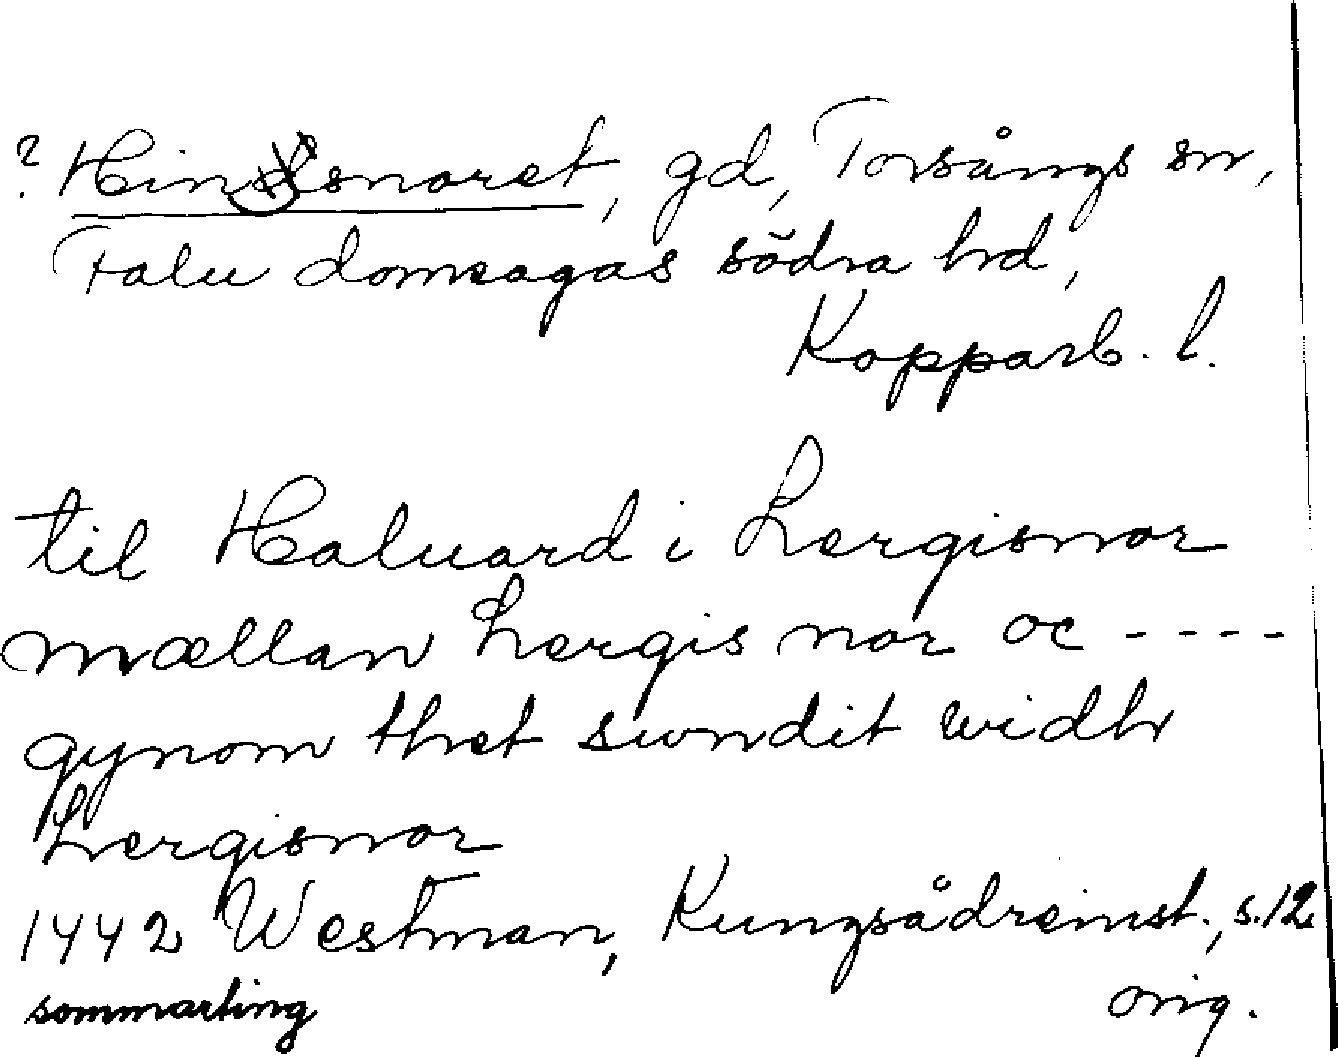 ? Hinsnoret, gd, Torsångs sn,
Falu domsagas södra hd,
Kopparb. l.
til Haluard i hærgisnor
mællan hærgis nor oc ----
gynom thet sundit widh
hærgisnor
1442 Westman, Kungsådreinst., s.12
sommarting orig.